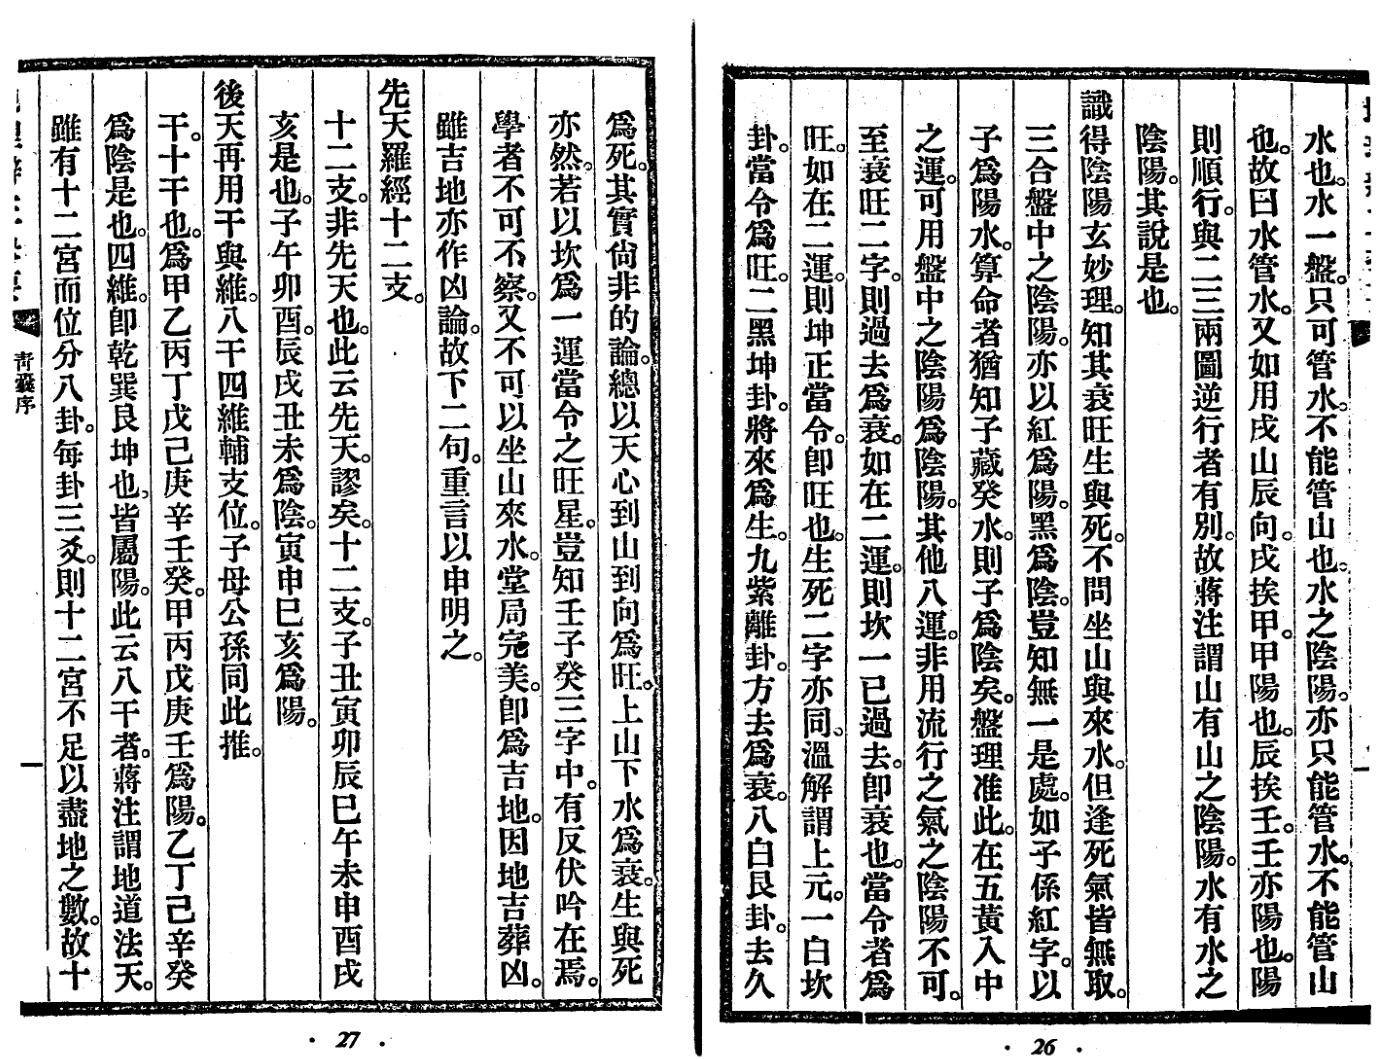 水也。水一盤。只可管水。不能管山也。水之陰陽。亦只能管水。不能管山
也。故曰水管水。又如用戌山辰向。戌挨甲。甲陽也。辰挨壬。壬亦陽也。陽
則順行。與二三兩圖逆行者有別。故蔣注謂山有山之陰陽。水有水之
陰陽。其說是也。
識得陰陽玄妙理。知其衰旺生與死。不問坐山與來水。但逢死氣皆無取。
三合盤中之陰陽。亦以紅爲陽。黑爲陰。豈知無一是處。如子係紅字。以
子爲陽水。算命者猶知子藏癸水。則子爲陰矣。盤理准此。在五黃入中
之運。可用盤中之陰陽爲陰陽。其他八運。非用流行之氣之陰陽不可。
至衰旺二字。則過去爲衰。如在二運。則坎一已過去。卽衰也。當令者爲
旺。如在二運。則坤正當令。卽旺也。生死二字亦同。溫解謂上元。一白坎
卦。當令爲旺。二黑坤卦。將來爲生。九紫離卦。方去爲衰。八白艮卦。去久
26
爲死。其實尙非的論。總以天心到山到向爲旺。上山下水爲衰。生與死
亦然。若以坎爲一運當令之旺星。豈知壬子癸三字中。有反伏吟在焉。
學者不可不察。又不可以坐山來水。堂局完美。卽爲吉地。因地吉葬凶。
雖吉地亦作凶論。故下二句。重言以申明之。
先天羅經十二支。
十二支。非先天也。此云先天。謬矣。十二支。子丑寅卯辰巳午未申酉戌
亥是也。子午卯酉。辰戌丑未爲陰。寅申巳亥爲陽。
後天再用干與維。八干四維輔支位。子母公孫同此推。
干。十干也。爲甲乙丙丁戊己庚辛壬癸。甲丙戊庚壬爲陽。乙丁己辛癸
爲陰是也。四維。卽乾巽艮坤也。皆屬陽。此云八干者。蔣注謂地道法天。
雖有十二宮而位分八卦。每卦三爻。則十二宮不足以盡地之數。故十
青囊序
一
27